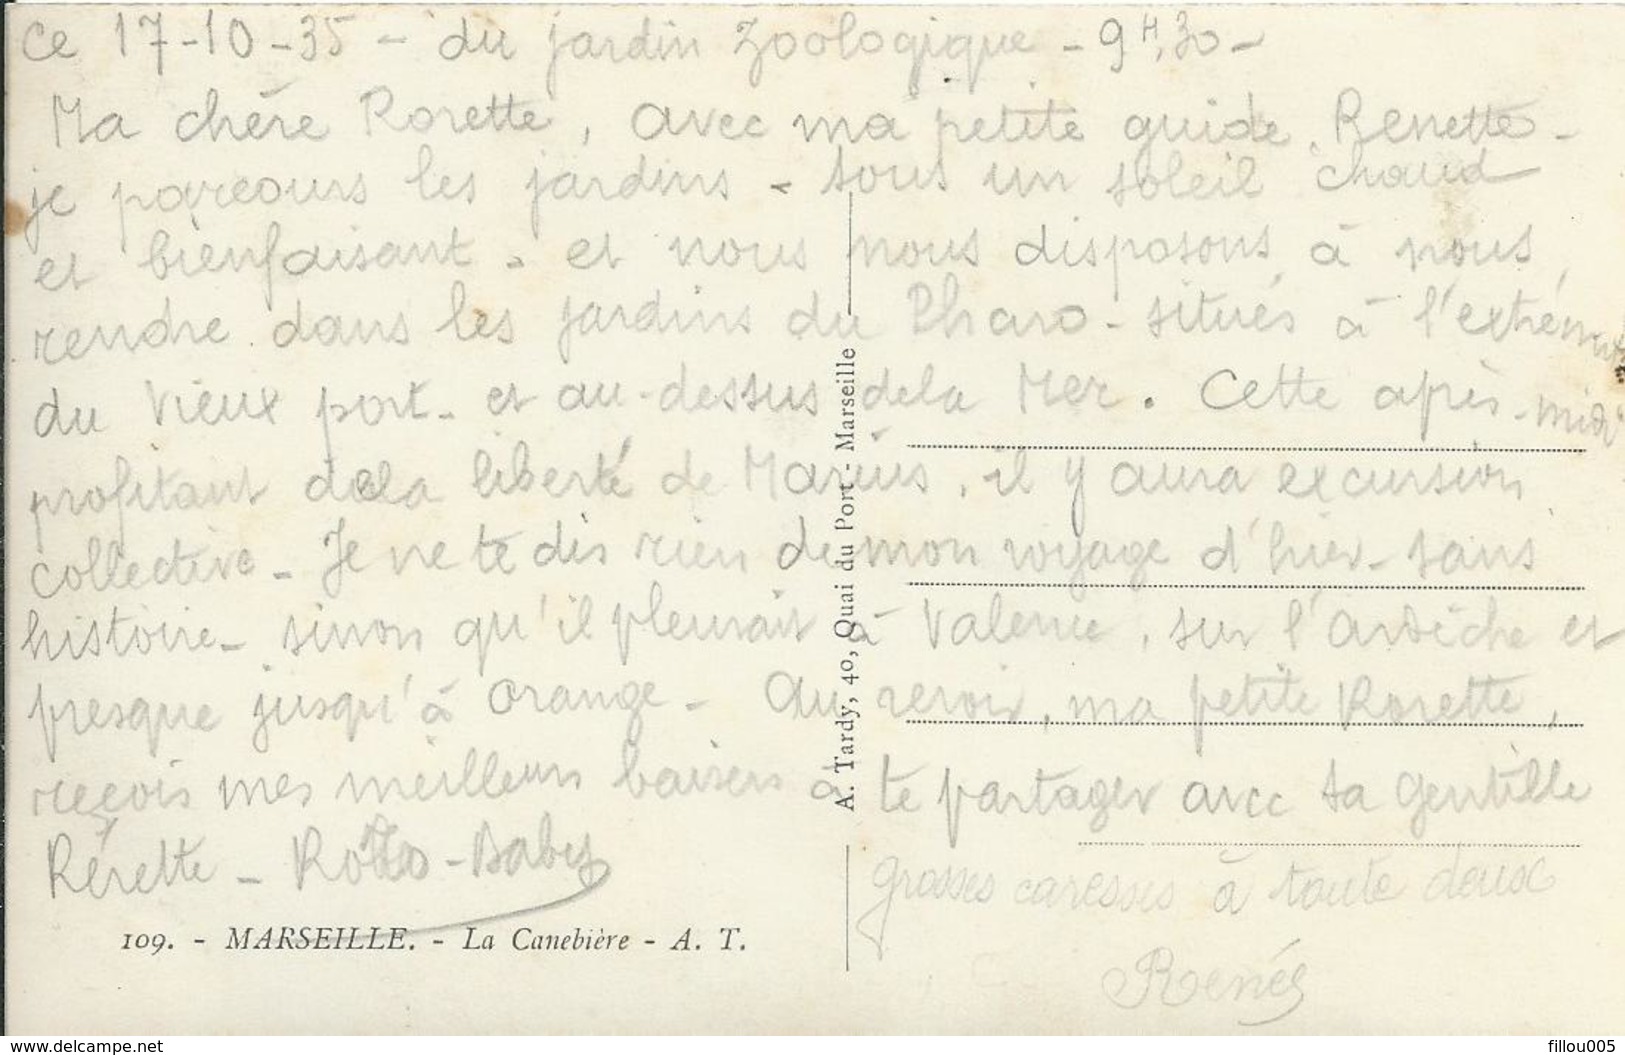 ce 17-10-35 - du jardin zoologique - 9H,30 -
Ma chère Rosette, avec ma petite guide Renette -
je parcours les jardins - sous un soleil chaud
et bienfaisant - et nous nous disposons à nous
rendre dans les jardins du Pharo - situés à l'extrémité
du Vieux port - et au-dessus dela Mer. Cette après-midi
profitant dela liberté de Marius, il y aura excursion
collective - Je ne te dis rien de mon voyage d'hier - sans
histoire - sinon qu'il pleuvait à Valence, sur l'Ardèche et
presque jusqu'à Orange - Au revoir, ma petite Rosette,
reçois mes meilleurs baisers à te partager avec ta gentille
Rérette -
grosses caresses à toute deux
Renée
109. - MARSEILLE. - La Canebière - A. T.
A. Tardy, 40, Quai du Port - Marseille
www.delcampe.net
fillou005